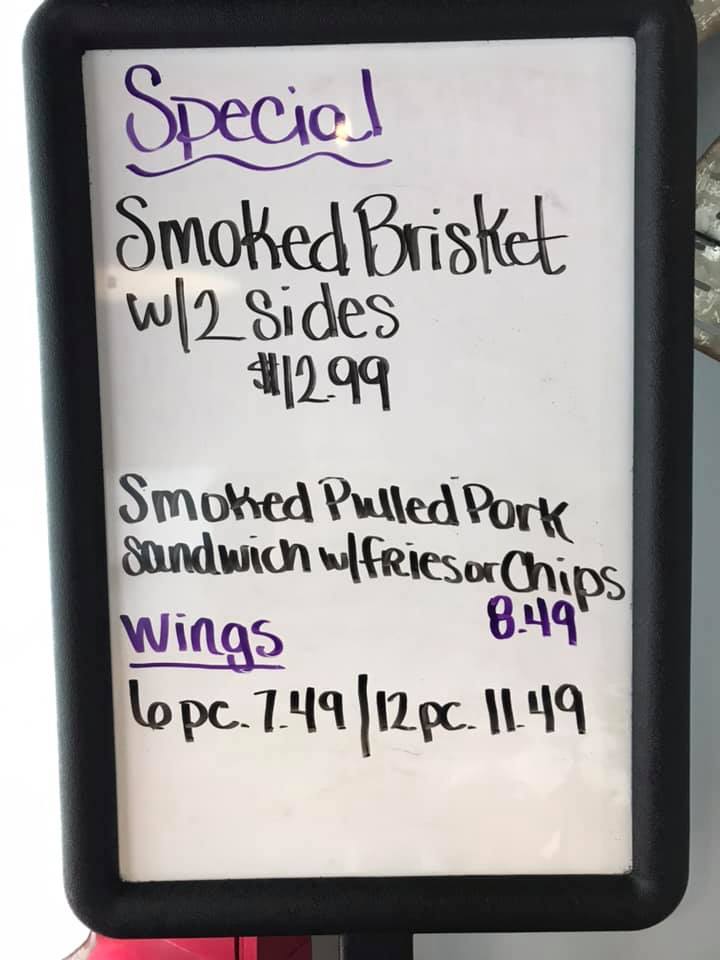 Special
Smoked Brisket
w/2 Sides
$12.99
Smoked Pulled Pork
Sandwich w/fries or Chips
8.49
Wings
6 pc. 7.49 / 12 pc. 11.49